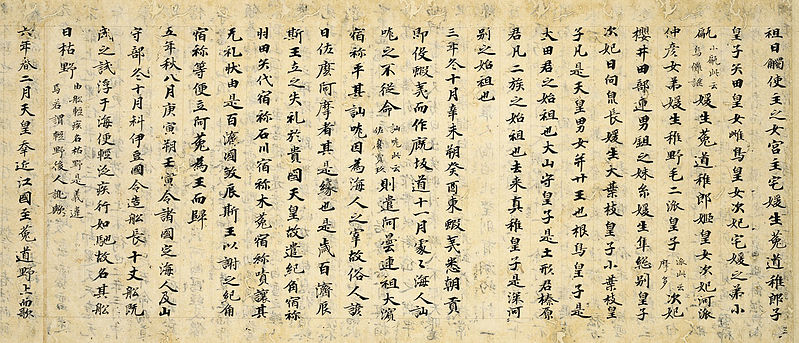 祖日觸使王之女宮主宅媛生菟道稚郎子
皇子矢田皇女雌鳥皇女次妃宅媛之弟小
甂小甂此云烏儺謎媛生菟道稚郎姬皇女次妃河派
仲彥女弟媛生稚野毛二派皇子派此云摩多次妃
櫻井田部連男鉏之妹糸媛生隼総別皇子
次妃日向泉長媛生大葉枝皇子小葉枝皇
子凡是天皇男女幷廿王也根鳥皇子是
大田君之始祖也大山守皇子是土形君榛原
君凡二族之始祖也去来真稚皇子是深河
別之始祖也
三年冬十月辛未朔癸酉東蝦夷悉朝貢
即役蝦夷而作厩坂道十一月處々海人訕
哤之不従命訕哤此云佐麼賣玖則遣阿曇連祖大濱
宿祢平其訕哤因為海人之宰故俗人諺
曰佐麼阿摩者其是縁也是歳百濟辰
斯王立之失礼於貴國天皇故遣紀角宿祢
羽田矢代宿祢石川宿祢木菟宿祢嘖讓其
无礼狀由是百濟國敦辰斯王以謝之紀角
宿祢等便立阿菀為王而歸
五年秋八月庚寅朔壬寅令諸國定海人及山
守部冬十月科伊豆國令造船長十丈船既
成之試浮于海便輕泛疾行如馳故名其船
曰枯野由船輕疾名枯野是義違焉若謂輕野後人訛歟
六年春二月天皇幸近江國至菟道野上而歌